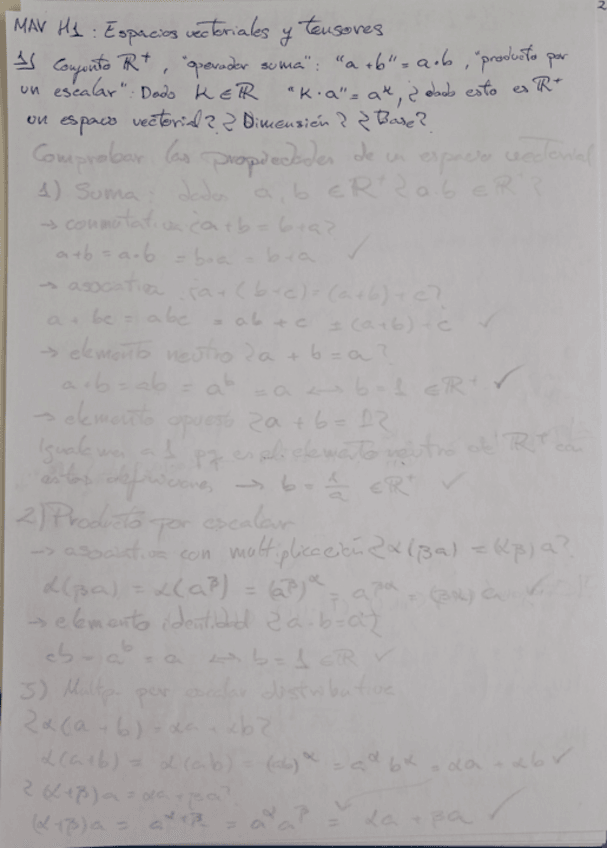 2
MAV H1: Espacios vectoriales y tensores
1) Conjunto ℝ⁺, "operador suma": "a+b" = a·b, "producto por
un escalar": Dado K ∈ ℝ "K·a" = aᵏ, ¿dado esto es ℝ⁺
un espaco vectorial? ¿Dimensión? ¿Base?
Comprobar las propiedades de un espacio vectorial
1) Suma: dados a, b ∈ ℝ⁺ ¿a·b ∈ ℝ⁺?
→ conmutativa ¿a+b = b+a?
a+b = a·b = b·a = b+a ✓
→ asociativa ¿a+(b+c) = (a+b)+c?
a + bc = abc = ab + c = (a+b)+c ✓
→ elemento neutro ¿a + b = a?
a·b = ab = a ↔ b = 1 ∈ ℝ⁺ ✓
→ elemento opuesto ¿a + b = 1?
Igualamos a 1 pq es el elemento neutro de ℝ⁺ con
estas definiciones → b = 1/a ∈ ℝ⁺ ✓
2) Producto por escalar
→ asociativa con multiplicación ¿α(βa) = (αβ)a?
α(βa) = α(a^β) = (a^β)^α = a^βα = (βα)a ✓
→ elemento identidad ¿a·b = a?
ab = a^b = a ↔ b = 1 ∈ ℝ ✓
3) Multip por escalar distributiva
¿α(a+b) = αa + αb?
α(a+b) = α(ab) = (ab)^α = a^α b^α = αa + αb ✓
¿(α+β)a = αa + βa?
(α+β)a = a^α+β = a^α a^β = αa + βa ✓